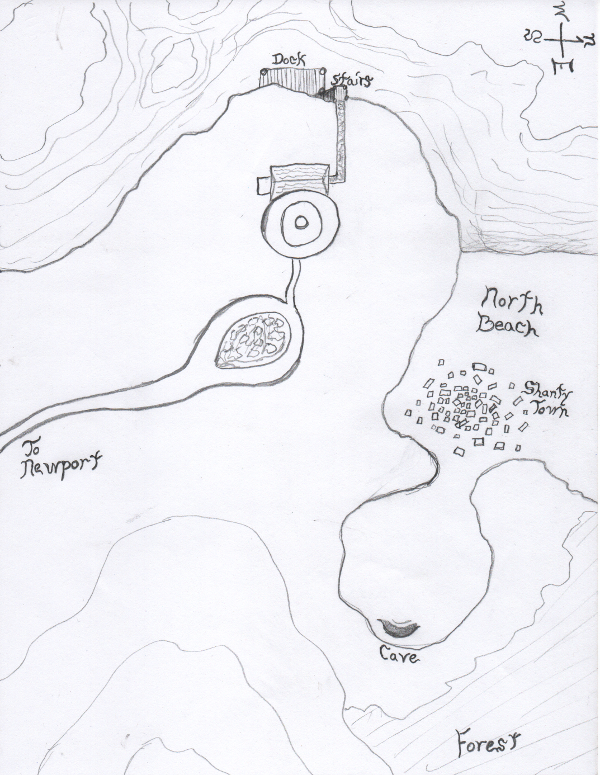 W
S
N
E
Dock
Stairs
North
Beach
Shanty
Town
To
Newport
Cave
Forest